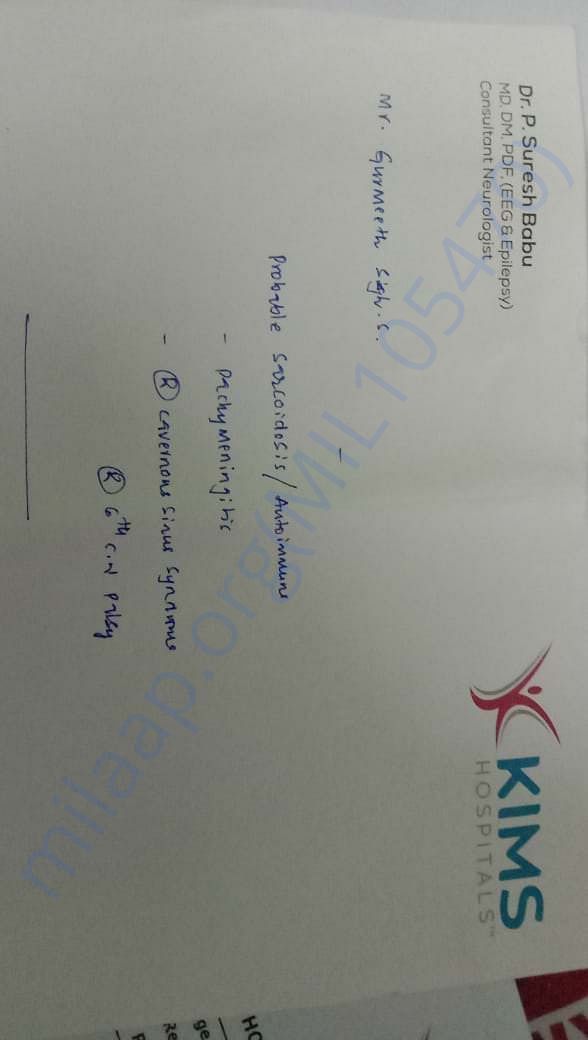 Dr. P. Suresh Babu
MD, DM, PDF, (EEG & Epilepsy)
Consultant Neurologist
KIMS
HOSPITALS™
Mr. Gurmeeth Sigh. S.
Probable Sarcoidosis / Autoimmune
- Pachymeningitis
- (R) cavernous sinus syndrome
(R) 6th C.N Palsy
milaap.org(MIL105476)
HO
ge